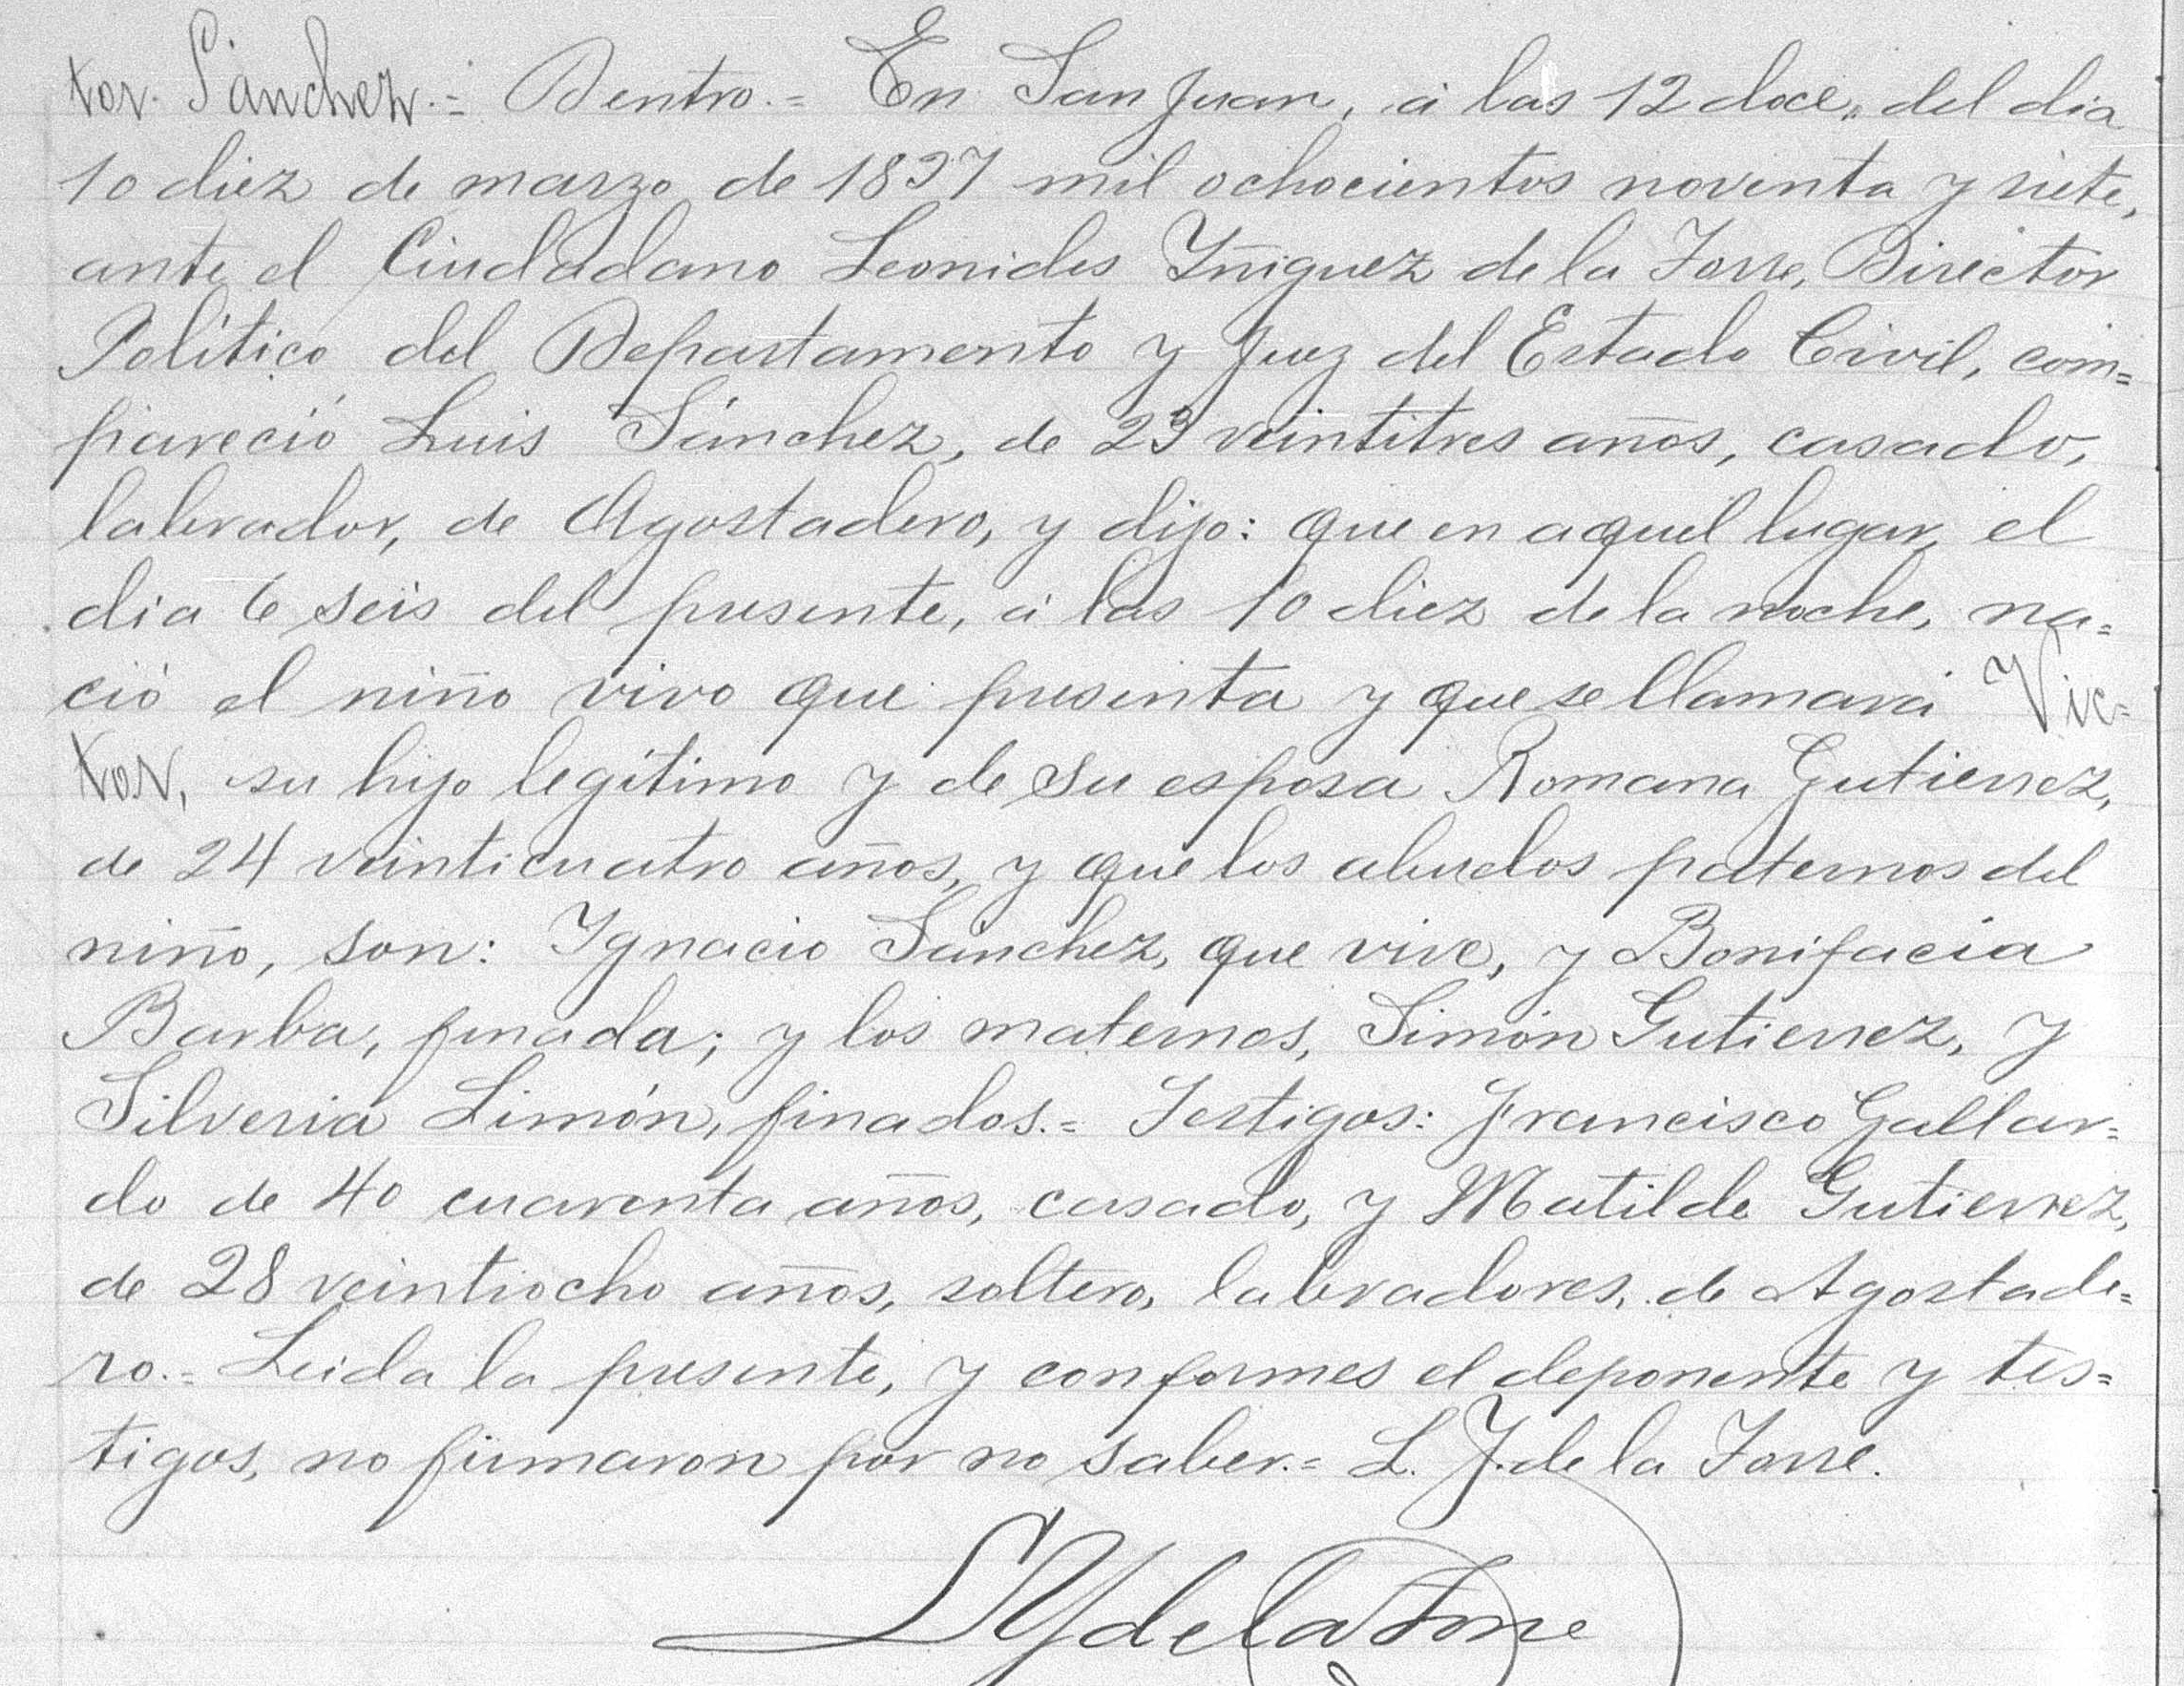 tor. Sánchez.= Dentro.= En San Juan, á las 12 doce, del dia
10 diez de marzo de 1897 mil ochocientos noventa y siete,
ante el Ciudadano Leonides Yñiguez de la Torre, Director
Político del Departamento y Juez del Estado Civil, com=
pareció Luis Sánchez, de 23 veintitres años, casado,
labrador, de Agostadero, y dijo: que en aquel lugar, el
dia 6 seis del presente, á las 10 diez de la noche, na=
ció el niño vivo que presenta y que se llamará Vic=
tor, su hijo legítimo y de su esposa Romana Gutierrez,
de 24 veinticuatro años, y que los abuelos paternos del
niño, son: Ygnacio Sánchez, que vive, y Bonifacia
Barba, finada; y los maternos, Simón Gutierrez, y
Silveria Limón, finados.= Testigos: Francisco Gallar=
do de 40 cuarenta años, casado, y Matilde Gutierrez,
de 28 veintiocho años, soltero, labradores, de Agostade=
ro.= Leida la presente, y conformes el deponente y tes=
tigos, no firmaron por no saber.= L. Y. de la Torre.
L Y de la Torre